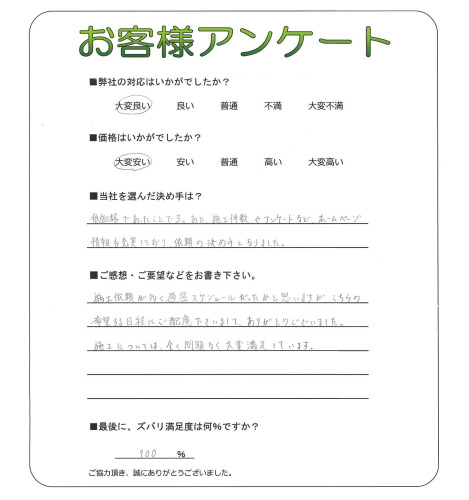 お客様アンケート
■弊社の対応はいかがでしたか？
大変良い 良い 普通 不満 大変不満
■価格はいかがでしたか？
大変安い 安い 普通 高い 大変高い
■当社を選んだ決め手は？
低価格であったことです。あと、施工件数やアンケートなど、ホームページ
情報も充実しており、依頼の決め手となりました。
■ご感想・ご要望などをお書き下さい。
施工依頼が多く過密スケジュールだったかと思いますが、こちらの
希望する日程にご配慮下さいまして、ありがとうございました。
施工については、全く問題なく大変満足しています。
■最後に、ズバリ満足度は何%ですか？
100 %
ご協力頂き、誠にありがとうございました。